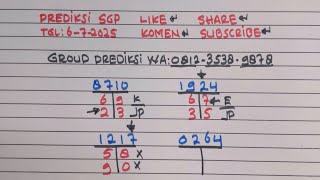 PREDIKSI SGP LIKE↵ SHARE↵
TGL: 6-7-2025 KOMEN↵ SUBSCRIBE↵
GROUP PREDIKSI WA: 0812-3538-9878
8710 1924
6 9 K 6 7 ← E
→ 2 3 JP 3 5 JP
1217 0264
5 8 X
9 0 X